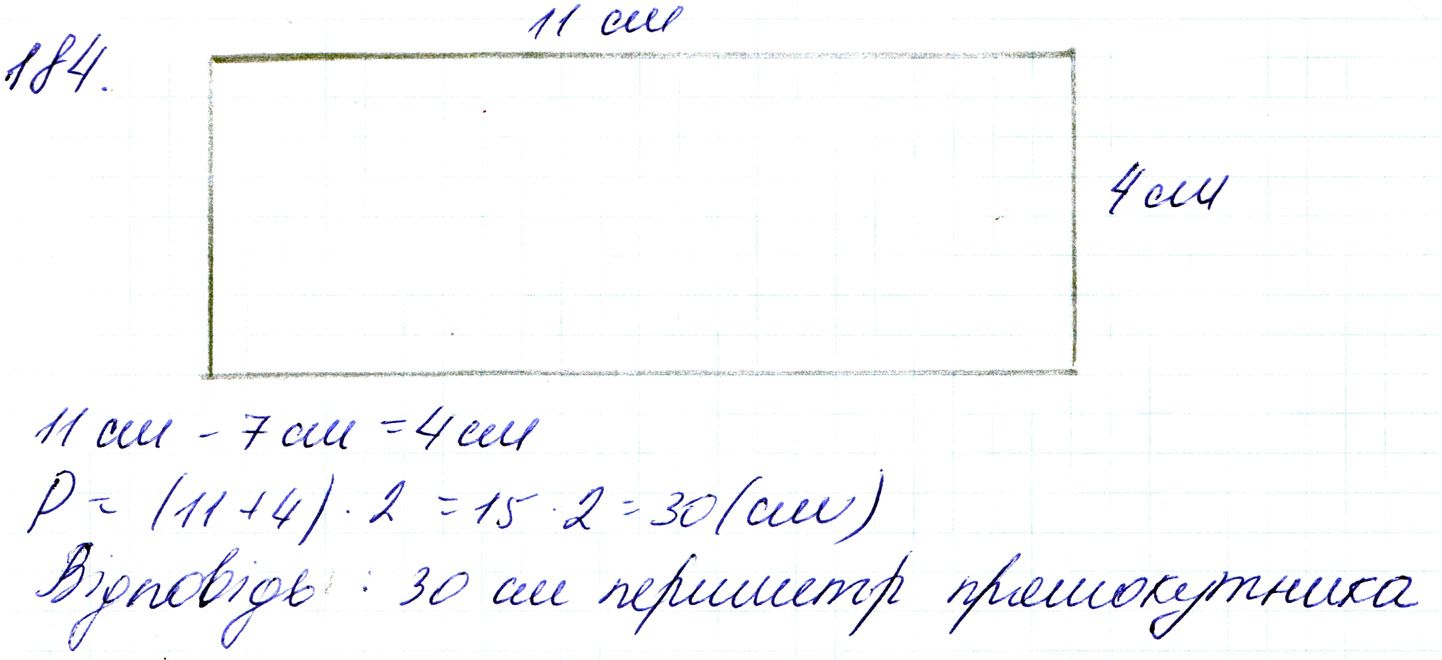 11 см
184.
4 см
11 см - 7 см = 4 см
P = (11 + 4) · 2 = 15 · 2 = 30 (см)
Відповідь : 30 см периметр прямокутника